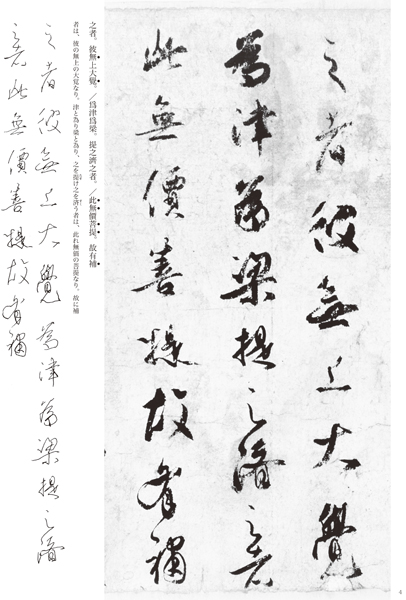 之者彼無上大覺
為津為梁提之濟之者
此無價菩提故有補
之者。彼無上大覺。／爲津爲梁。提之濟之者。／此無價菩提。故有補
者は、彼の無上の大覚なり。津と為り梁と為り、之を提け之を済う者は、此れ無価の菩提なり。故に補
之者彼無上大覺為津為梁提之濟
之者此無價菩提故有補
4